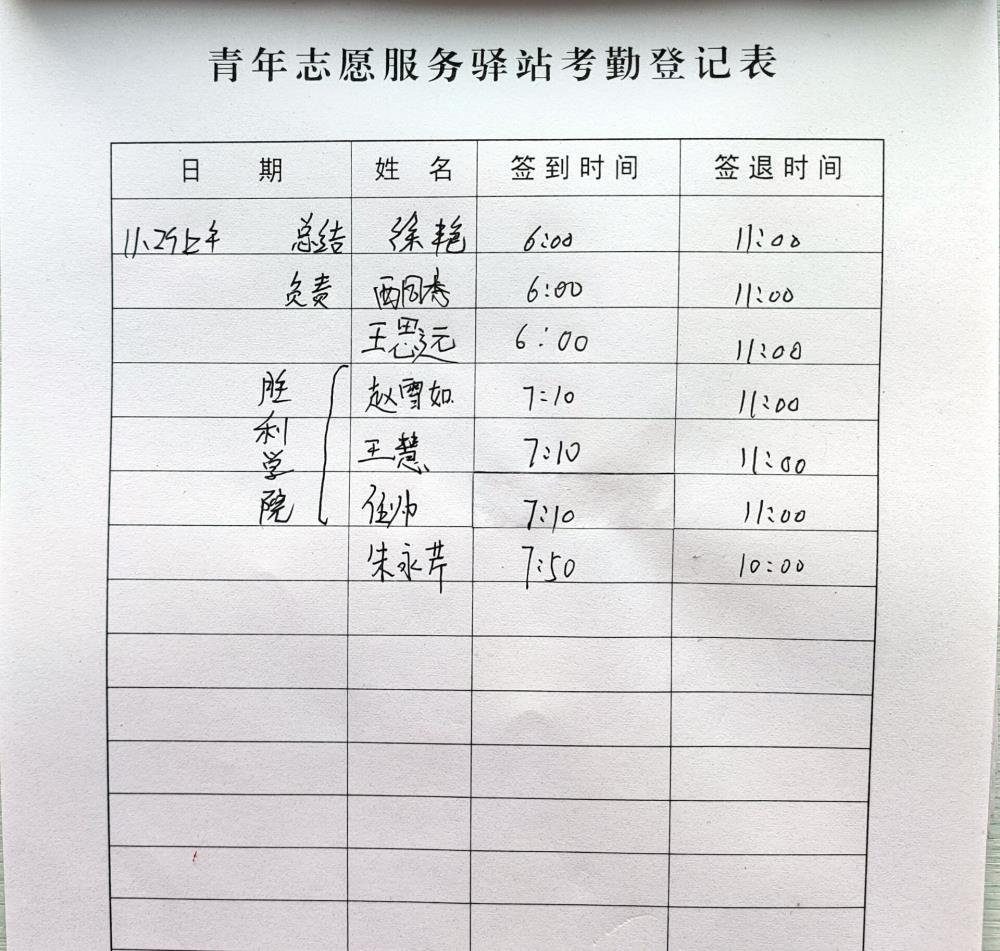 青年志愿服务驿站考勤登记表
日 期 姓 名 签到时间 签退时间
11、29上午 总结 徐艳 6:00 11:00
负责 6:00 11:00
王思远 6:00 11:00
胜利学院 赵雪如 7:10 11:00
王慧 7:10 11:00
任帅 7:10 11:00
朱永芹 7:50 10:00